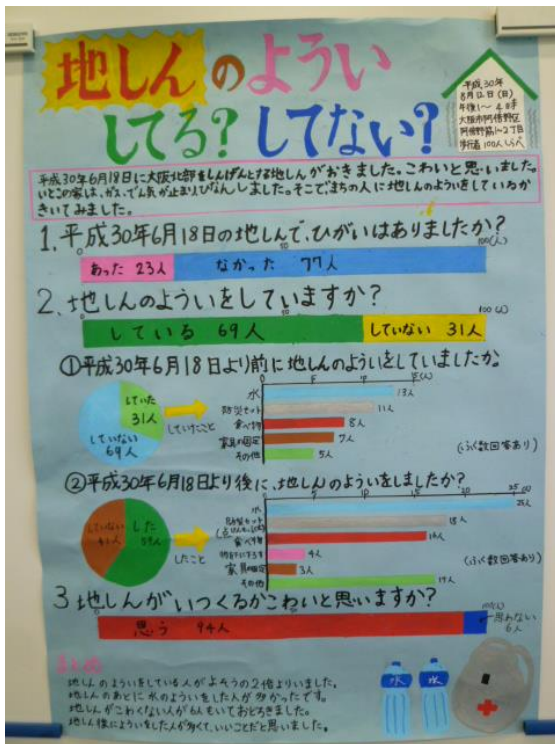 地しんのようい
してる?してない?
平成30年
8月12日(日)
午後1〜4時
大阪市阿倍野区
阿倍野筋1〜2丁目
歩行者100人しらべ
平成30年6月18日に大阪北部をしんげんとする地しんがおきました。こわいと思いました。
いとこの家は、ガス、でん気が止まり、ひなんしました。そこで、まちの人に地しんのよういをしているか
きいてみました。
1.平成30年6月18日の地しんで、ひがいはありましたか?
0 50 100(人)
あった 23人 なかった 77人
2.地しんのよういをしていますか?
0 50 100(人)
している 69人 していない 31人
①平成30年6月18日より前に地しんのよういをしていましたか。
していた
31人
していない
69人
していたこと
0 5 10 15(人)
水 13人
防災セット 11人
食べ物 8人
家具の固定 7人
その他 5人
(ふく数回答あり)
②平成30年6月18日より後に、地しんのよういをしましたか?
した
していない
したこと
0 5 10 15 20 25(人)
水 25人
防災セット 18人
食べ物
4人
家具の固定 3人
その他
(ふく数回答あり)
3.地しんがいつくるかこわいと思いますか?
思う 94人
思わない
6人
まとめ
地しんのよういをしている人がよそうの2倍よりいました。
地しんのあとに水のよういをした人が多かったです。
地しんがこわくない人が6人もいておどろきました。
地しん後によういをした人が多くて、いいことだと思いました。
水 水